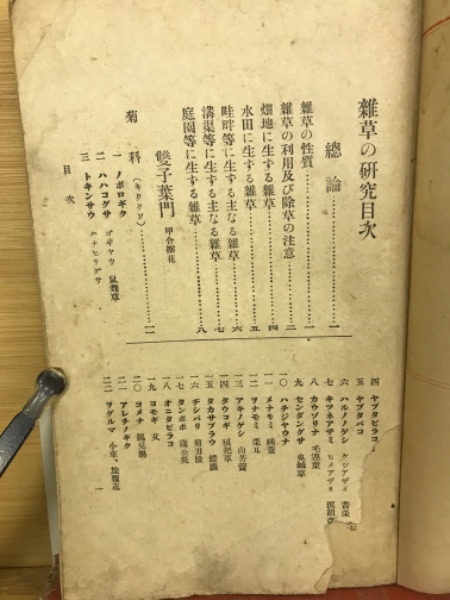 雜草の研究目次
總論……一
雜草の性質……一
雜草の利用及び除草の注意……二
畑地に生ずる雜草……四
水田に生ずる雜草……五
畦畔等に生ずる主なる雜草……六
溝渠等に生ずる主なる雜草……七
庭園等に生ずる雜草……八
雙子葉門 甲 合瓣花
菊科(キククワ)……一一
一 ノボロギク
二 ハハコグサ ゴギヤウ 鼠麴草
三 トキンサウ ハナヒリグサ
目次
四 ヤブタビラコ
五 ヤブタバコ
六 ハルノノゲシ ケシアザミ 苦菜
七 キツネアザミ ヒメアザミ 泥胡菜
八 カウゾリナ 毛連菜
九 センダングサ 鬼鍼草
一〇 ハチジヤウナ
一一 メナモミ 豨薟
一二 ヲナモミ 葈耳
一三 アキノノゲシ 山萵苣
一四 タウコギ 狼把草
一五 タカサブラウ 鱧腸
一六 ヂシバリ 剪刀股
一七 タンポポ 蒲公英
一八 オニタビラコ
一九 ヨモギ 艾
二〇 ヨメナ 鷄兒腸
二一 アレチノギク
二二 ヲグルマ 小車、旋覆花
一